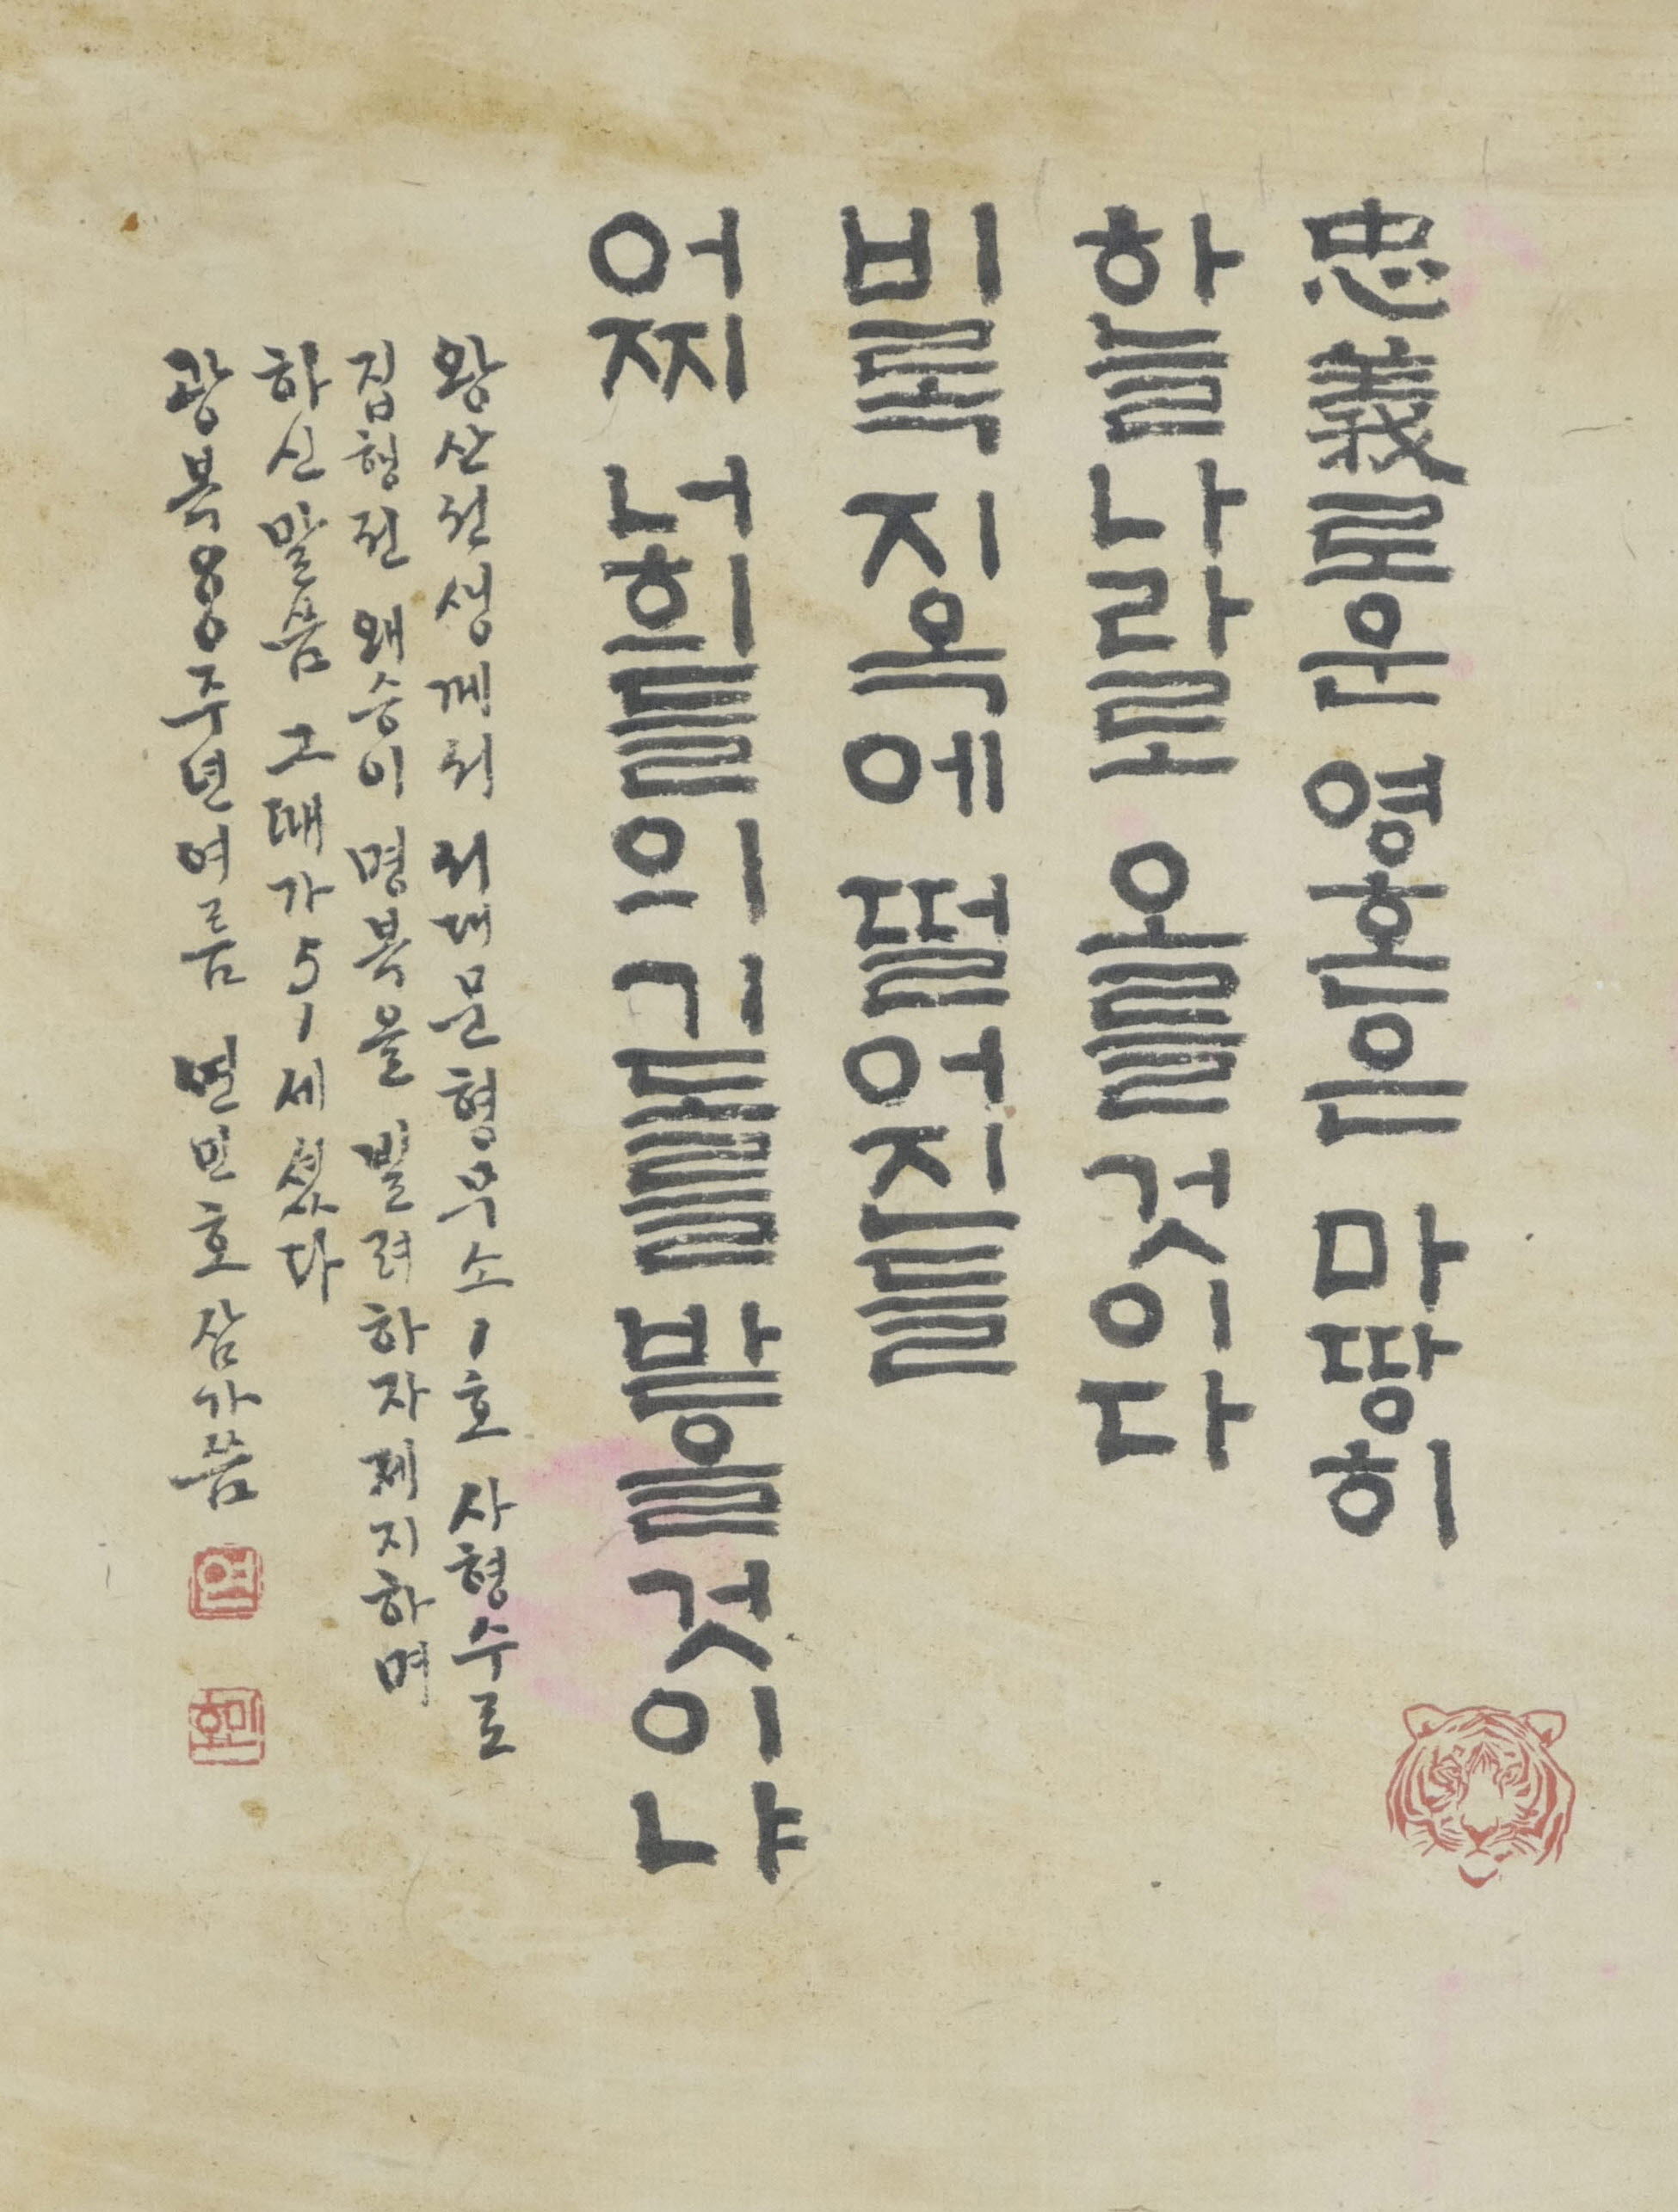 忠義로운 영혼은 마땅히
하늘나라로 오를것이다
비록 지옥에 떨어진들
어찌 너희들의 기도를 받을것이냐
왕산선생께서 서대문형무소 1호 사형수로
집형전 왜승이 명복을 빌려하자 제지하며
하신말씀 그때가 51세셨다
광복80주년여름 연민호 삼가씀
연
민호